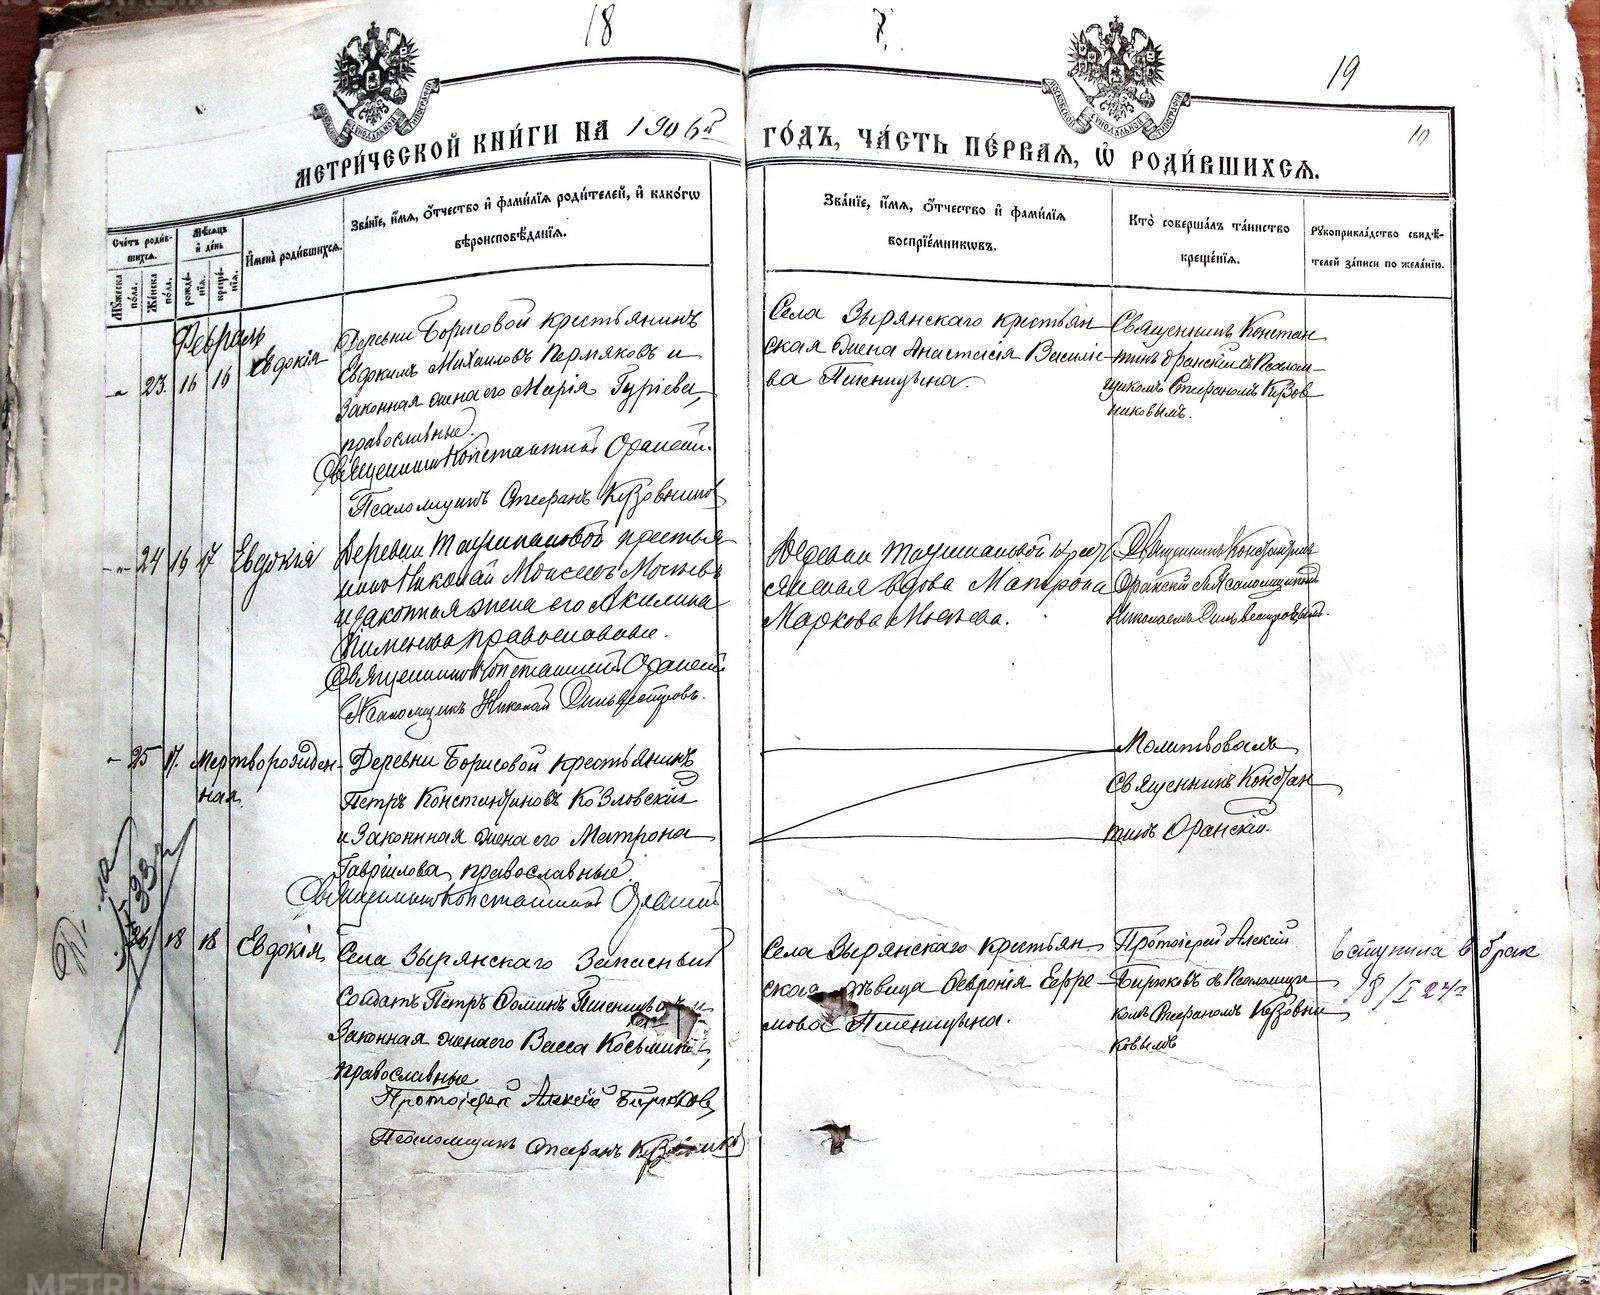 18
7.
19
19
МЕТРИ́ЧЕСКОЙ КНИ́ГИ НА 1906й ГО́ДЪ, ЧА́СТЬ ПЕ́РВАЯ, Ѡ РОДИ́ВШИХСЯ.
Сче́тъ роди́вшихся.
Му́жеска по́ла.
Же́нска по́ла.
Мѣ́сяцъ и де́нь
рожде́нія.
креще́нія.
И́мена роди́вшихся.
Зва́ніе, и́мя, о́тчество и фами́лія роди́телей, и како́гѡ
вѣроисповѣ́данія.
Зва́ніе, и́мя, о́тчество и фами́лія
воспрiе́мникѡвъ.
Кто̀ соверша́лъ та́инство
креще́нія.
Рукоприкла́дство свидѣ́-
телей за́писи по жела́нію.
Февраль
23. 16 16 Евдокія
Деревни Борисовой крестьянинъ
Евдокимъ Михаиловъ Пермяковъ и
законная жена его Марія Гуріева,
православные.
Священникъ Константинъ Оранскій.
Псаломщикъ Стефанъ Кузовников
Села Зырянскаго крестьян
ская жена Анастасія Василіе
ва Пшеницына.
Священникъ Констан
тинъ Оранскій съ Псалом-
щикомъ Стефаномъ Кузов
никовымъ.
24 16 17 Евдокія
Деревни крестья
нинъ Николай Моисеевъ
и законная жена его Акилина
Пименова православные.
Священникъ Константинъ Оранскій
Псаломщикъ Николай Сильвестровъ.
Деревни кресть
янская вдова Матрона
Маркова
Священникъ Константинъ
Оранскій съ Псаломщикомъ
Николаемъ Сильвестровымъ.
25 17. Мертворожден-
ная.
Деревни Борисовой крестьянинъ
Петръ Константиновъ Козловскій
и законная жена его Матрона
Гавріилова, православные.
Священникъ Константинъ Оранскій
Молитвовалъ
Священникъ Констан
тинъ Оранскій.
26 18 18 Евдокія
Села Зырянскаго Запасный
Солдатъ Петръ Фоминъ Пшеницынъ и
законная жена его Васса Косьмина,
православные
Протоіерей Алексій Бирюков,
Псаломщикъ Стефанъ Кузовников
Села Зырянскаго крестьян
ская дѣвица Февронія Ефре
мова Пшеницына.
Протоіерей Алексій
Бирюковъ съ Псаломщи
комъ Стефаномъ Кузовни
ковымъ
вступила в брак
18/I 24 г